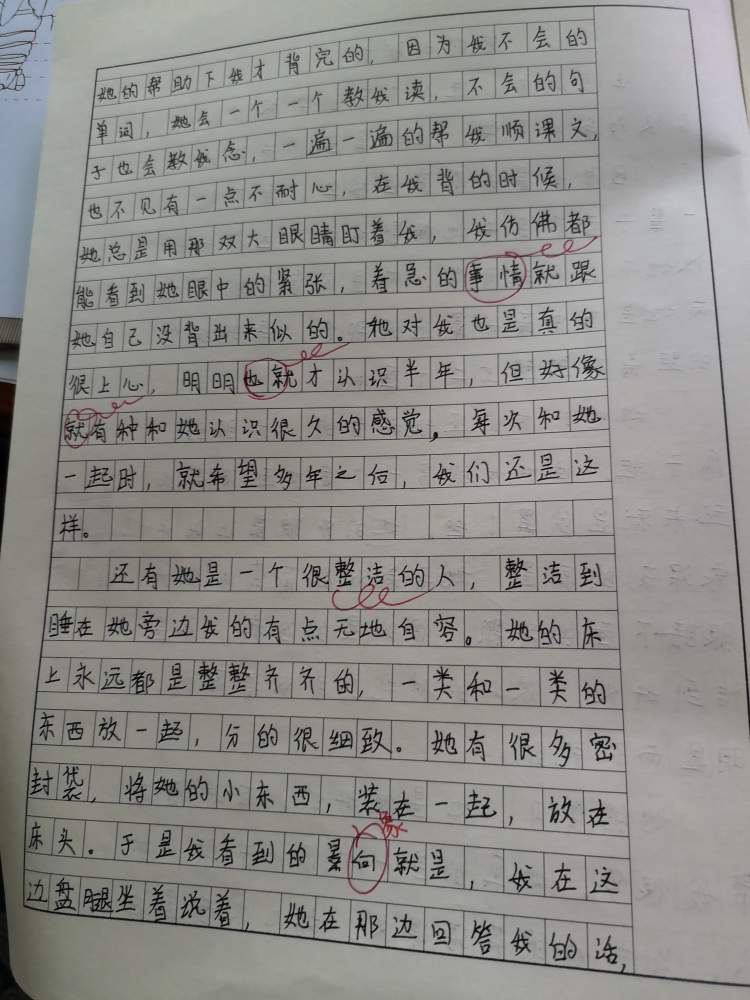 她的帮助下我才背完的，因为我不会的
单词，她会一个一个教我读，不会的句
子也会教我念，一遍一遍的帮我顺课文，
也不见有一点不耐心，在我背的时候，
她总是用那双大眼睛盯着我，我仿佛都
能看到她眼中的紧张，着急的事情就跟
她自己没背出来似的。她对我也是真的
很上心，明明也就才认识半年，但好像
就有种和她认识很久的感觉，每次和她
一起时，就希望多年之后，我们还是这
样。
还有她是一个很整洁的人，整洁到
睡在她旁边我的有点无地自容。她的床
上永远都是整整齐齐的，一类和一类的
东西放一起，分的很细致。她有很多密
封袋，将她的小东西，装在一起，放在
床头。于是我看到的景向就是，我在这
象
边盘腿坐着说着，她在那边回答我的话，